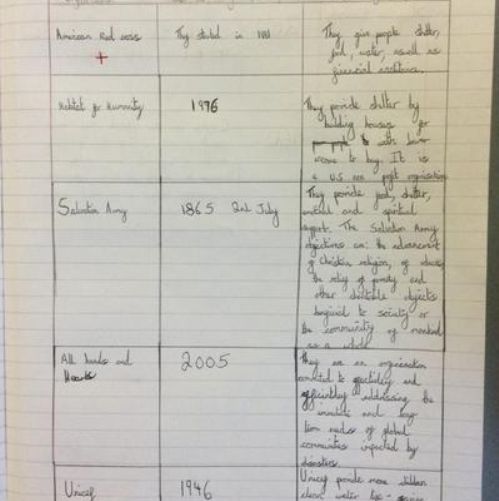 American Red cross
They started in 1881
They give people shelter,
food, water, aswell as
financial assistance.
Habitat for Humanity
1976
They provide shelter by
building houses for
people with lower
income to buy. It is
a U.S non profit organisation
Salvation Army
1865 2nd July
They provide food, shelter,
emotional and spiritual
support. The Salvation Army
objectives are: the advancement
of Christian religion, of education
the relief of poverty and
other charitable objects
beneficial to society or
the community of mankind
as a whole
All hands and
Hearts
2005
They are an organisation
committed to effectively and
efficiently addressing the
immediate and long
term needs of global
communities impacted by
disasters.
Unicef
1946
Unicef provide more children
clean water